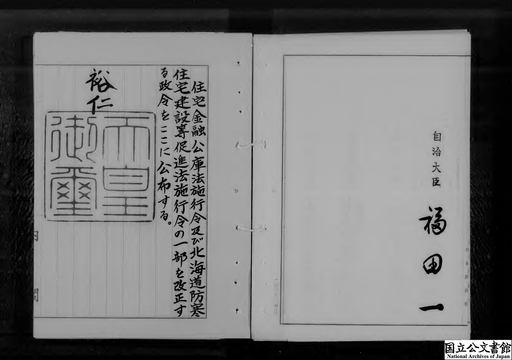 自治大臣
福田一
住宅金融公庫法施行令及び北海道防寒
住宅建設等促進法施行令の一部を改正す
る政令をここに公布する。
裕仁
天皇
御璽
内閣
国立公文書館
National Archives of Japan